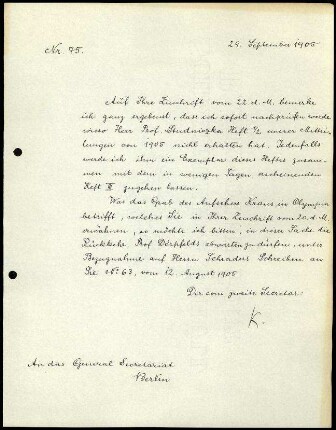 Nr. 75.
24. September 1905
Auf Ihre Zuschrift vom 22. d. M. bemerke
ich ganz ergebenst, dass ich sofort nachprüfen werde
wieso Herr Prof. Studniczka Heft 1/2 unserer Mittei-
lungen von 1905 nicht erhalten hat. Jedenfalls
werde ich ihm ein Exemplar dieses Heftes zusam-
men mit dem in wenigen Tagen erscheinenden
Heft III zugehen lassen.
Was das Grab des Aufsehers Kraus, in Olympia
betrifft, welches Sie in Ihrer Zuschrift vom 20. d. M.
erwähnen, so möchte ich bitten, in dieser Sache die
Rückkehr Prof. Dörpfelds abwarten zu dürfen, unter
Bezugnahme auf Herrn Schraders Schreiben an
Sie No. 63, vom 12. August 1905
Der com. zweite Secretar:
K.
An das General Secretariat
Berlin